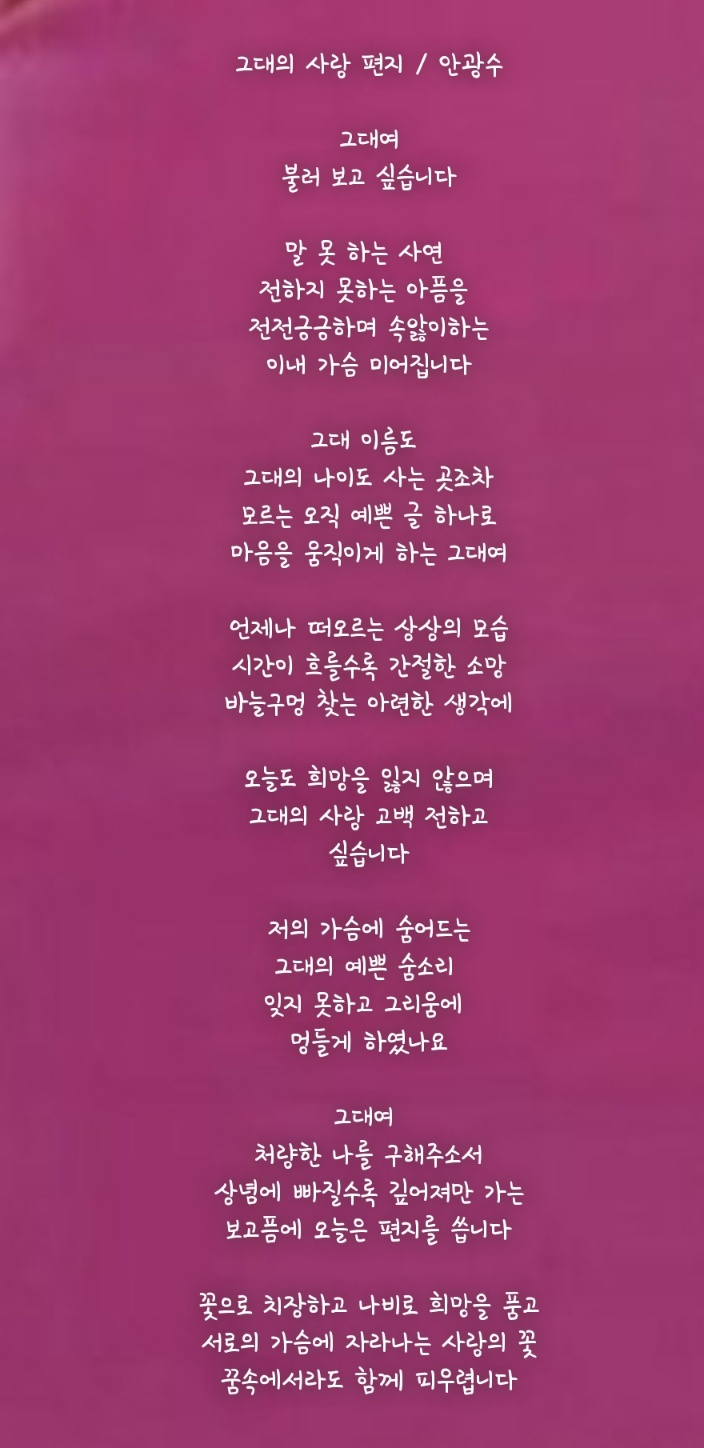 그대의 사랑 편지 / 안광수
그대여
불러 보고 싶습니다
말 못 하는 사연
전하지 못하는 아픔을
전전긍긍하며 속앓이하는
이내 가슴 미어집니다
그대 이름도
그대의 나이도 사는 곳조차
모르는 오직 예쁜 글 하나로
마음을 움직이게 하는 그대여
언제나 떠오르는 상상의 모습
시간이 흐를수록 간절한 소망
바늘구멍 찾는 아련한 생각에
오늘도 희망을 잃지 않으며
그대의 사랑 고백 전하고
싶습니다
저의 가슴에 숨어드는
그대의 예쁜 숨소리
잊지 못하고 그리움에
멍들게 하였나요
그대여
처량한 나를 구해주소서
상념에 빠질수록 깊어져만 가는
보고픔에 오늘은 편지를 씁니다
꽃으로 치장하고 나비로 희망을 품고
서로의 가슴에 자라나는 사랑의 꽃
꿈속에서라도 함께 피우렵니다